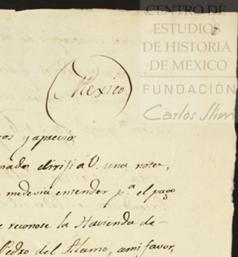 CENTRO DE
ESTUDIOS
DE HISTORIA
DE MEXICO
FUNDACIÓN
Carlos Slim
Mexico
y aprecio
dirijí a V. una nota,
me devia entender pª. el pago
reconose la Hacienda de
Pedro del Alamo, ami favor,